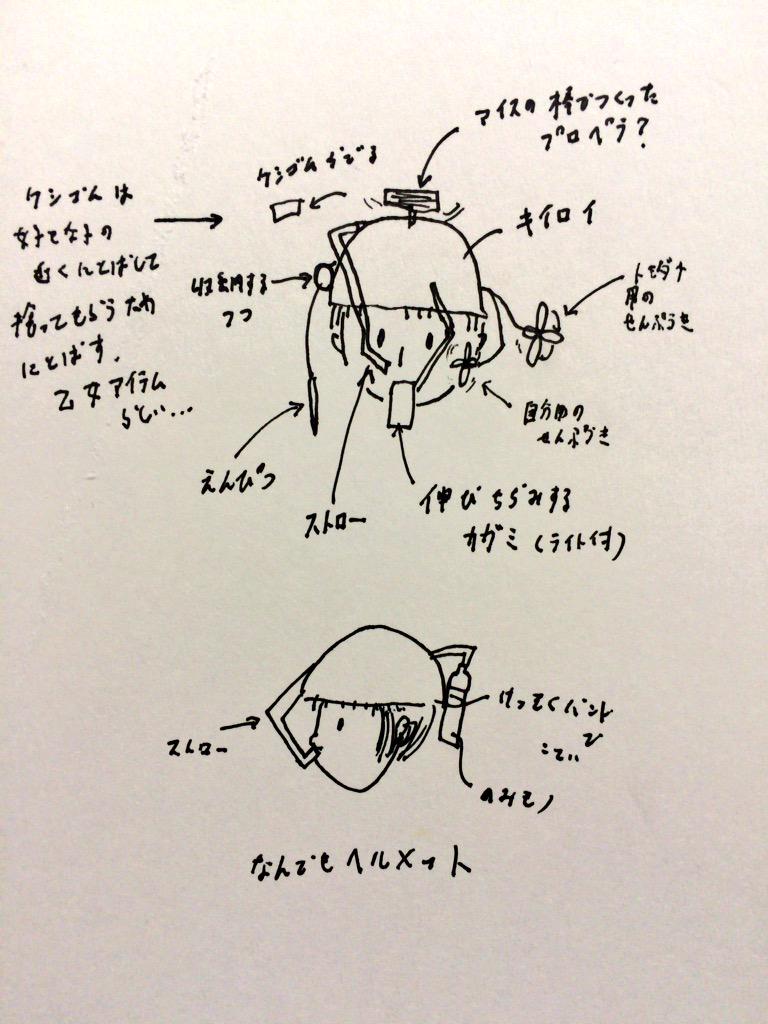 アイスの棒でつくった
プロペラ?
ケシゴムがでる
ケシゴムは
好きな子の
近くにとばして
拾ってもらうため
にとばす。
乙女アイテム
らしい…
キイロイ
収納する
トモダチ
用の
せんぷうき
自分用の
せんぷうき
えんぴつ
ストロー
伸びちぢみする
カガミ(ライト付)
ストロー
けってくバンド
こていで
のみもノ
なんでもヘルメット